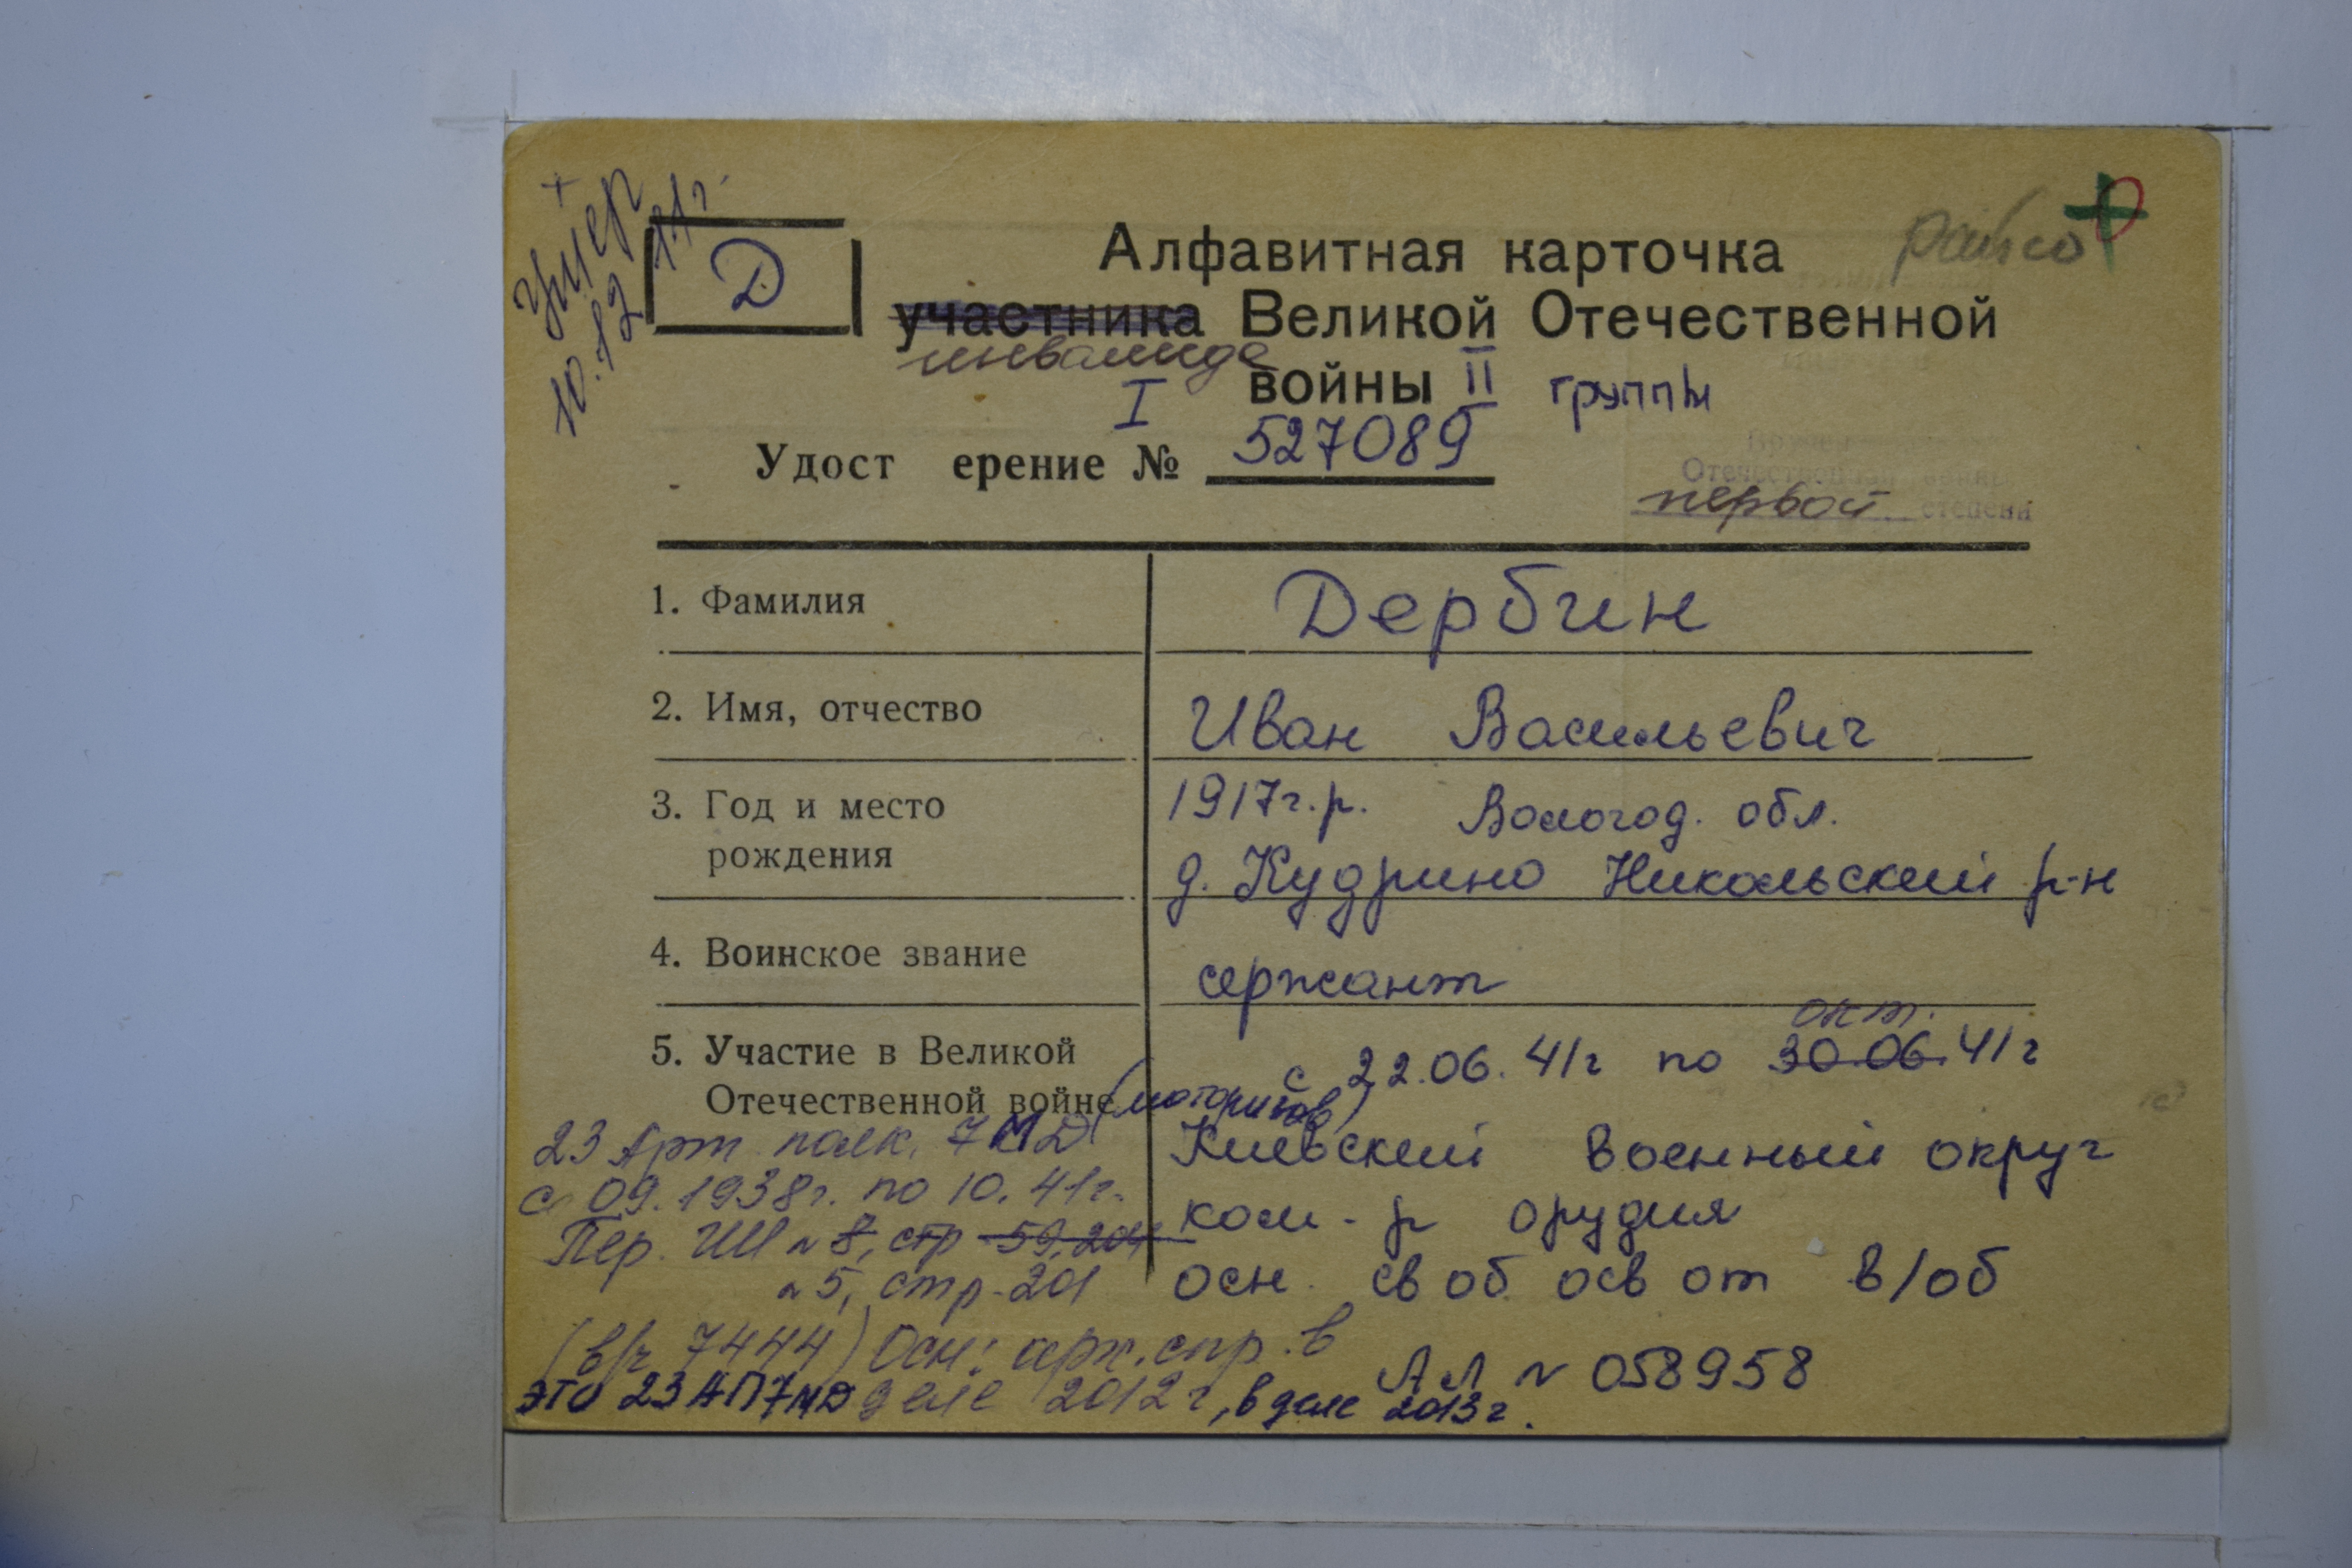 +
умер
10.12 11г.
Д
райсо
Алфавитная карточка
участника Великой Отечественной
инвалида
I войны II группы
Удост ерение № 527089
Отечественной войны
первой степени
1. Фамилия Дербин
2. Имя, отчество Иван Васильевич
3. Год и место 1917г.р. Вологод. обл.
рождения д. Кудрино Никольский р-н
4. Воинское звание сержант
окт.
5. Участие в Великой с 22.06.41г по 30.06.41г
Отечественной войне
23 Арт полк. 7МД Киевский военный округ
с 09.1938г. по 10.41г. ком-р орудия
Пер. № 8, стр 59, 204
№ 5, стр. 201 осн. своб осв от в/об
(в/ч 7444) Осн: арх. спр. в
АЛ № 058958
это 23АП7МД деле 2012г, в деле 2013г.